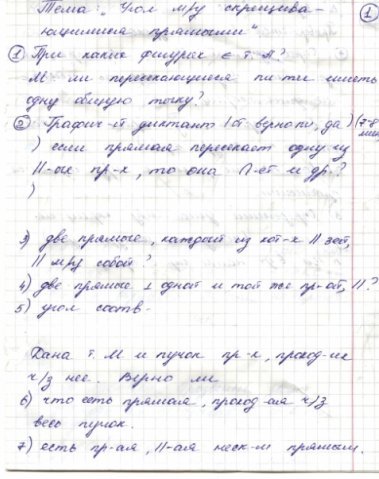 Тема: „Угол м/у скрещива- ①
ющимися прямыми“
① При каких фигурах ∈ т. А?
М ли пересекающиеся пл-ти иметь
одну общую точку?
② Графич-й диктант (от верно, да) (7-8
) если прямая пересекает одну из мин
II-ых пр-х, то она П-ет и др.?
)
3) две прямые, каждая из кот-х II 3ей,
II м/у собой?
4) две прямые ⊥ одной и той же пр-ой, II?
5) угол соотв-
Дана т. М и пучок пр-х, проход-их
ч/з нее. Верно ли
6) что есть прямая, проход-ая ч/з
весь пучок.
7) есть пр-ая, II-ая неск-м прямым.